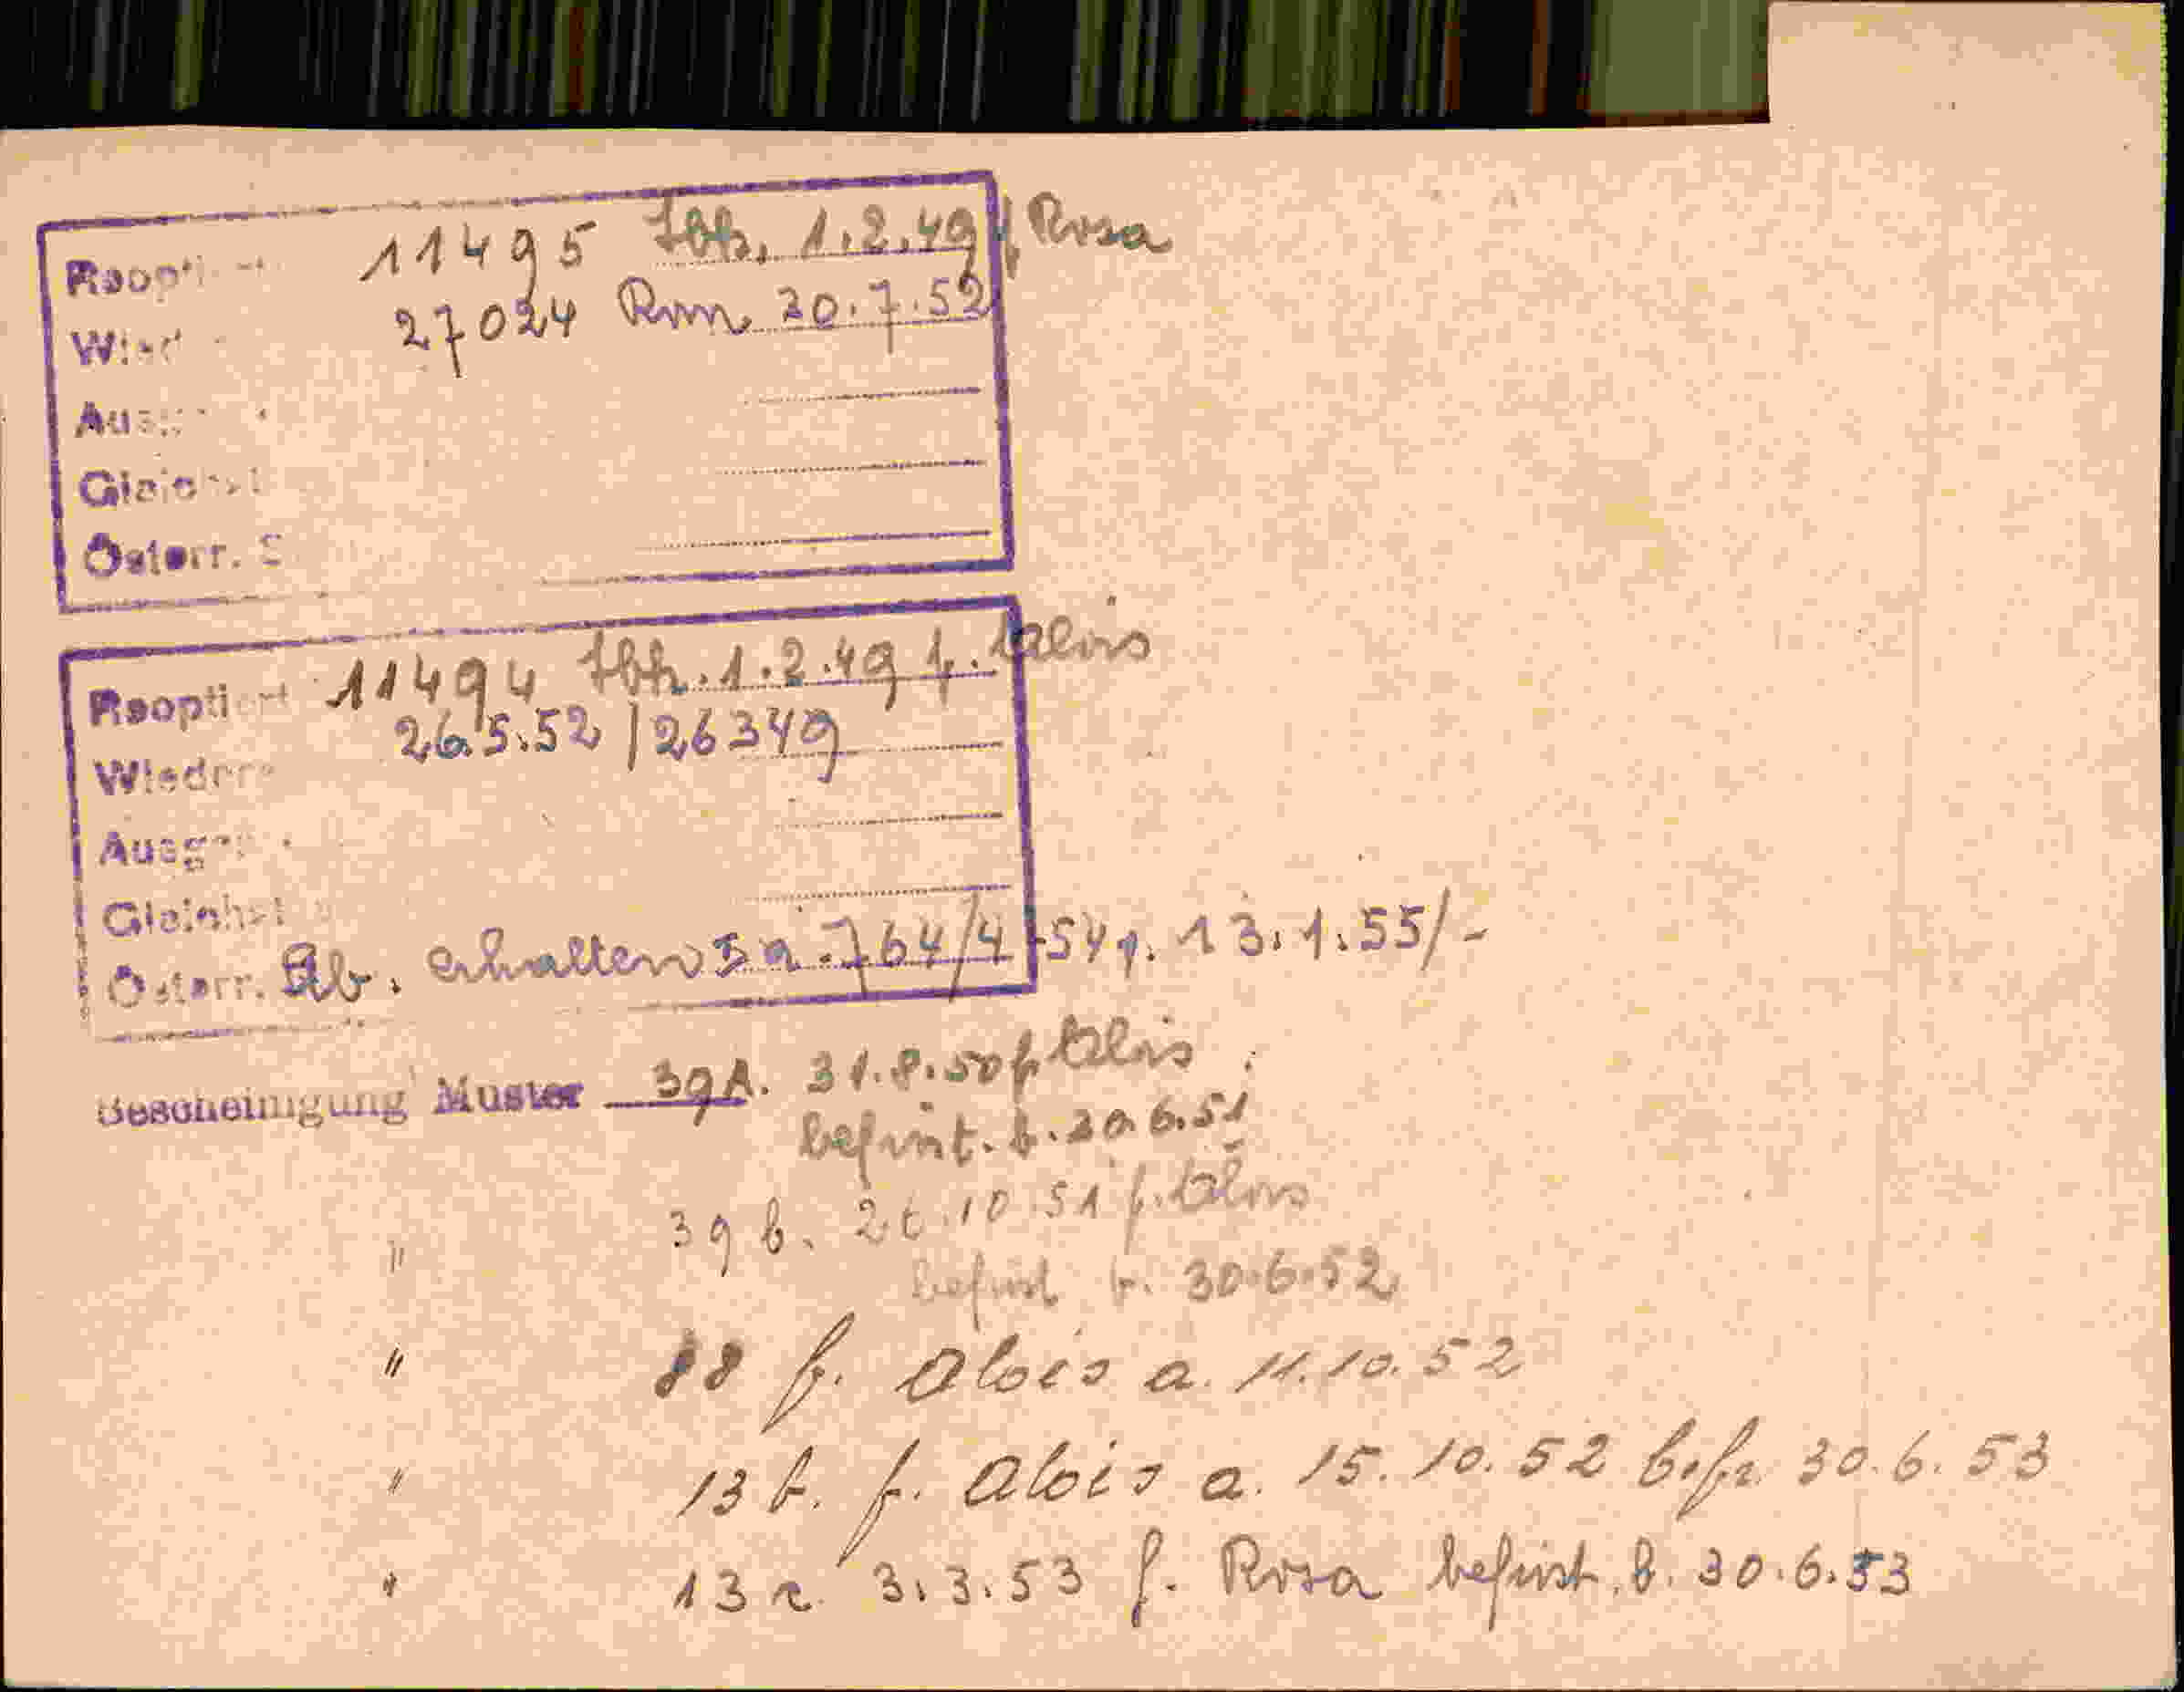 Reoptiert 11495 Ibk. 1.2.49 f. Rosa
27024 Rom 30.7.52
Wied
Ausg
Gleichst
Österr. S
Reoptiert 11494 Ibk. 1.2.49 f. Alois
26.5.52 / 26349
Wieder
Ausg
Gleichst
Österr. Stb. erhalten I a - 764/4 - 54 v. 13.1.55/-
Bescheinigung Muster 39A. 31.8.50 f. Alois
befrist. b. 30.6.51
" 39 b. 26.10.51 f. Alois
befrist b. 30.6.52
" 88 f. Alois a. 11.10.52
" 13 b. f. Alois a. 15.10.52 b. 30.6.53
" 13 3.3.53 f. Rosa befrist. b. 30.6.53